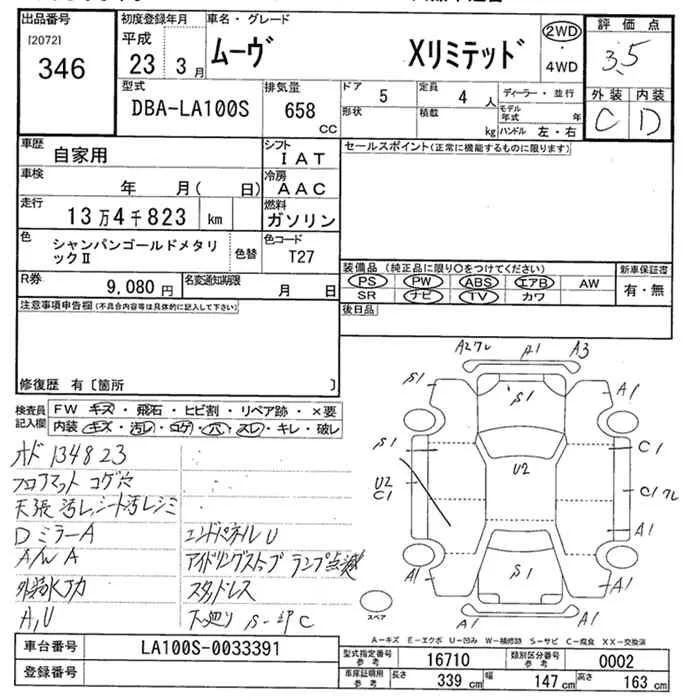 出品番号
[2072]
346
初度登録年月
平成
23 3月
車名・グレード
ムーヴ Xリミテッド
2WD
・
4WD
評価点
3.5
外装 内装
C D
型式
DBA-LA100S
排気量
658
cc
ドア 5
形状
定員 4 人
積載 kg
ディーラー・並行
モデル年式 年
ハンドル 左・右
車歴
自家用
シフト
IAT
車検
年 月( 日)
冷房
AAC
走行
13万4千823 km
燃料
ガソリン
色
シャンパンゴールドメタリックⅡ
色替
色コード
T27
R券
9,080円
名変通知期限
月 日
セールスポイント(正常に機能するものに限ります)
装備品(純正品に限り○をつけてください)
新車保証書
PS PW ABS エアB AW
SR ナビ TV カワ
有・無
後日品
注意事項申告欄(不具合内容等は具体的に記入して下さい)
修復歴 有〔箇所 〕
検査員記入欄
FW キズ・飛石・ヒビ割・リペア跡・×要
内装 キズ・汚レ・コゲ・穴・スレ・キレ・破レ
オド 134823
フロアマット コゲ穴
天張 汚レ シート汚レシミ
DミラーA
A/W A
A,U
エンドパネルU
アイドリングストップ ランプ点滅
スタッドレス
下廻り S-
C
A1
A3
S1
S1
A1
S1
C1
U2
C1
U2
A1
A1
S1
A1
A1
スペア
A-キズ E-エクボ U-凹み W-補修跡 S-サビ C-腐食 XX-交換済
車台番号
LA100S-0033391
登録番号
型式指定番号
参考
16710
類別区分番号
参考
0002
車庫証明用
参考
長さ 339 cm
幅 147 cm
高さ 163 cm